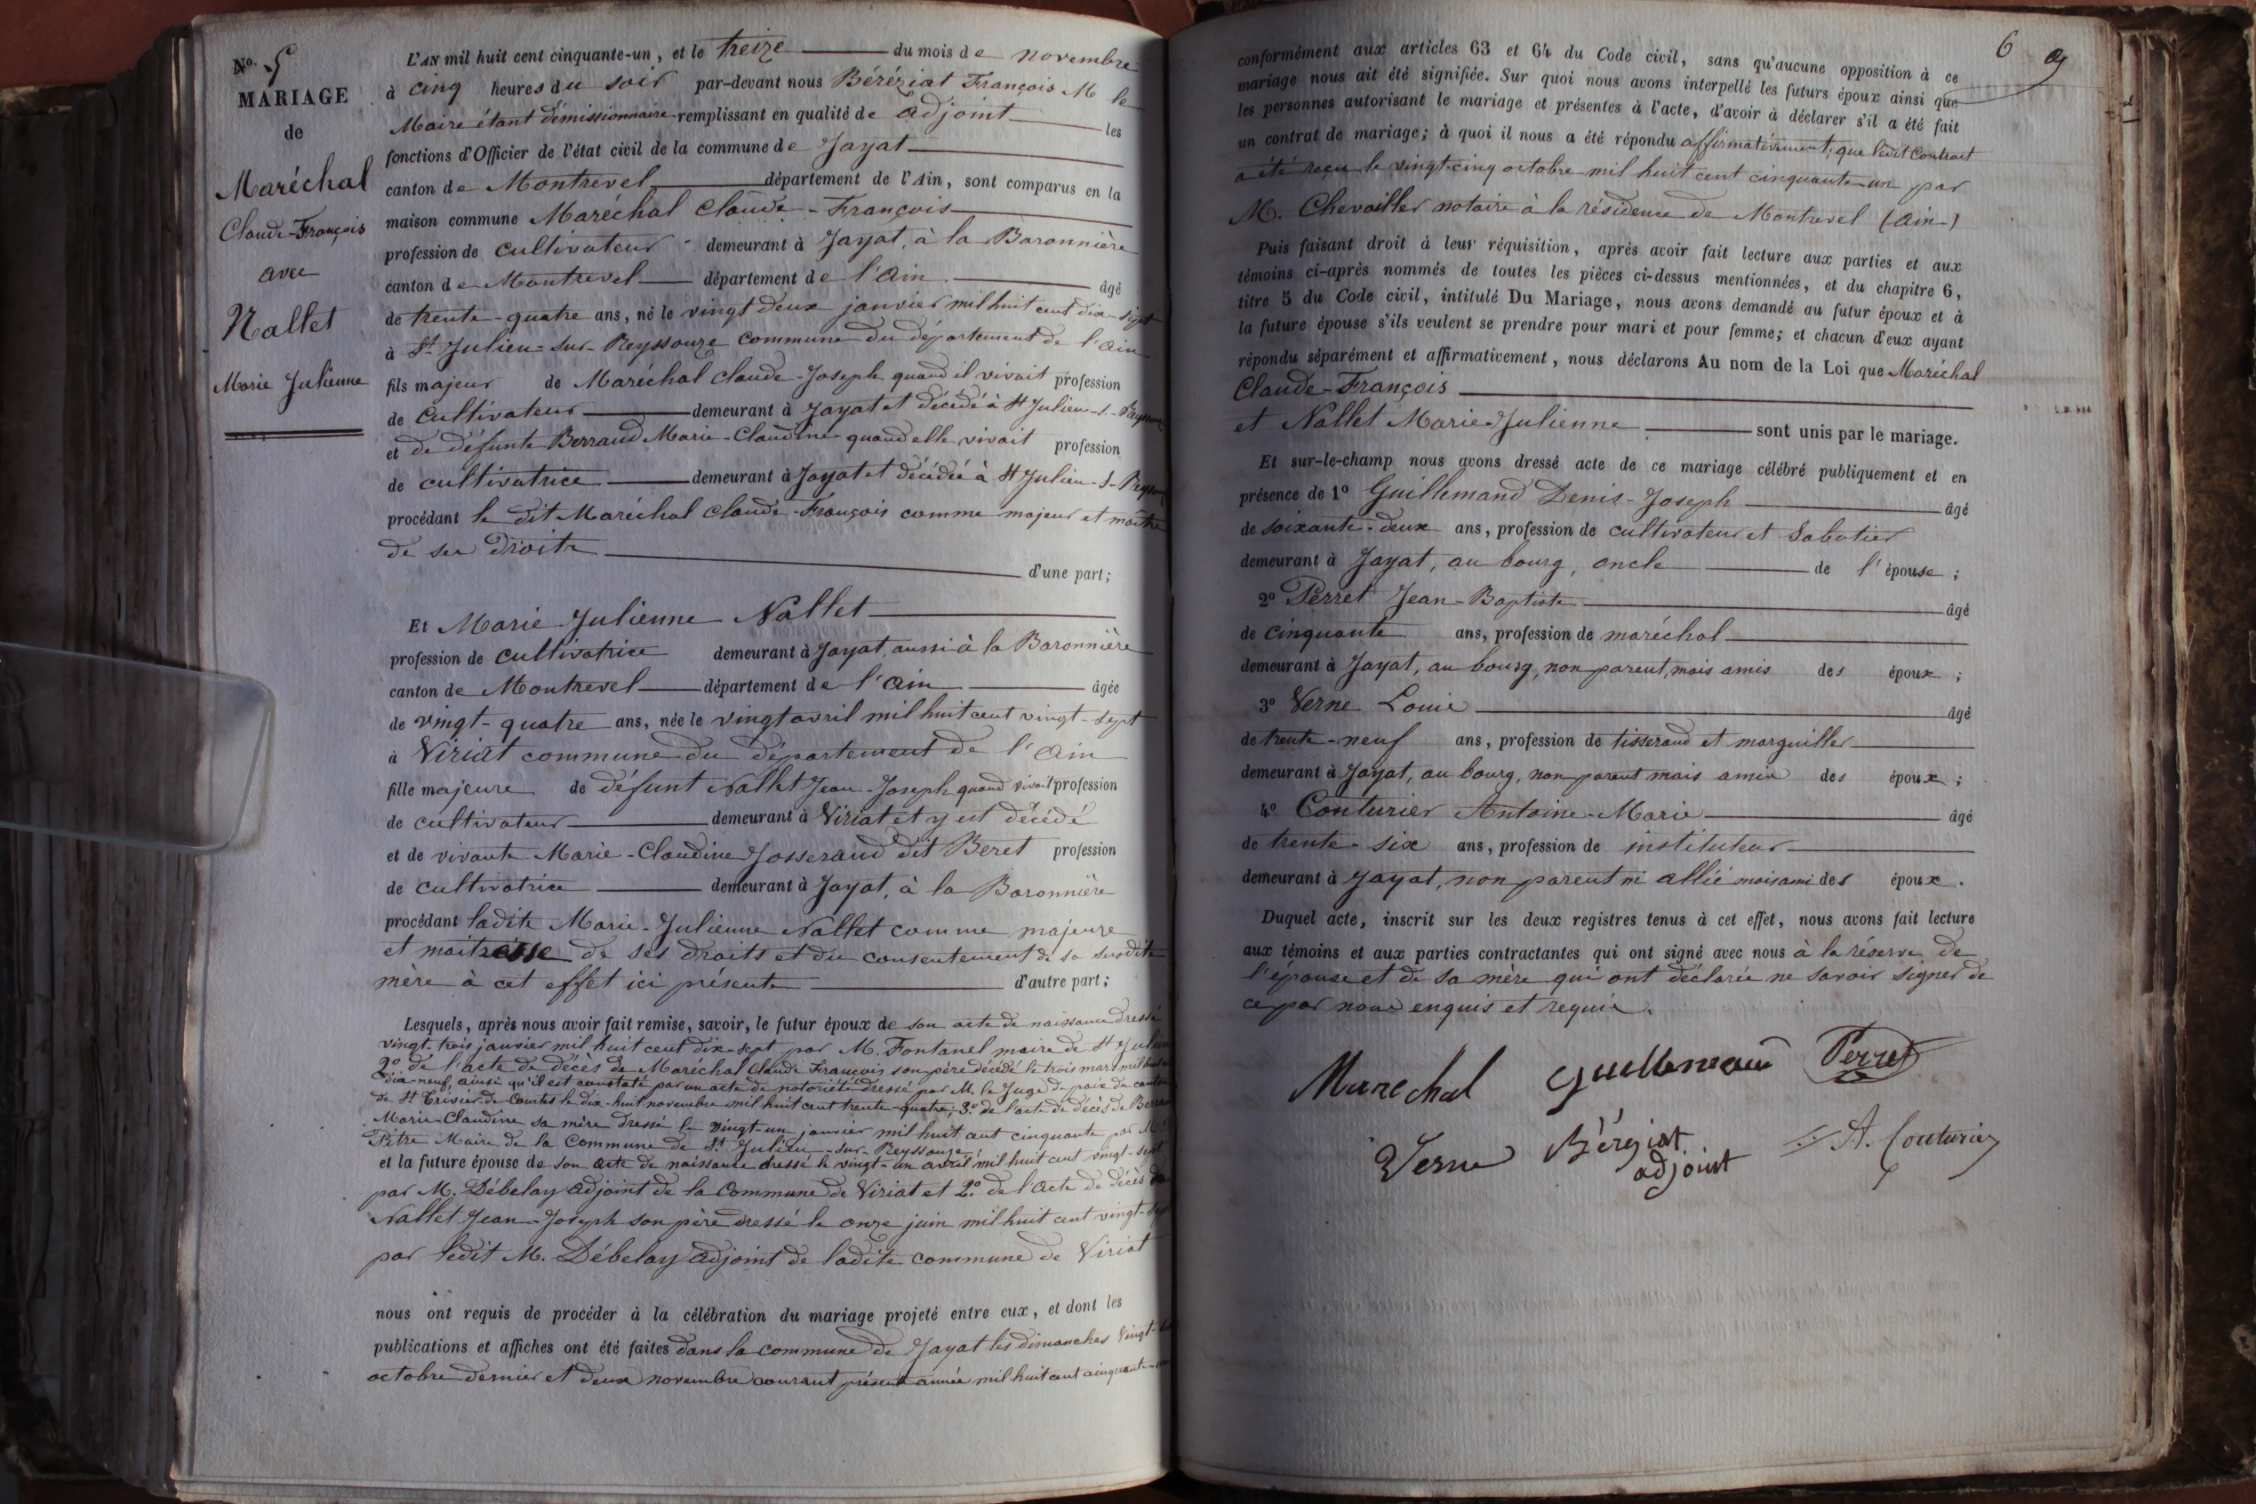 N.o 5
MARIAGE
de
Maréchal
Claude-François
avec
Nallet
Marie Julienne
L'AN mil huit cent cinquante-un, et le treize du mois de novembre
à cinq heures du soir par-devant nous Béréziat François M le
Maire étant démissionnaire remplissant en qualité de adjoint les
fonctions d'Officier de l'état civil de la commune de Jayat
canton de Montrevel département de l'Ain, sont comparus en la
maison commune Maréchal Claude-François
profession de cultivateur demeurant à Jayat, à la Baronnière
canton de Montrevel département de l'ain âgé
de trente-quatre ans, né le vingt deux janvier mil huit cent dix-sept
à St Julien-sur-Reyssouze commune du département de l'ain
fils majeur de Maréchal Claude-Joseph quand il vivait profession
de cultivateur demeurant à Jayat et décédé à St Julien-s-Reyssouze
et de défunte Berraud Marie-Claudine quand elle vivait profession
de cultivatrice demeurant à Jayat et décédée à St Julien-s-Reyss
procédant le dit Maréchal Claude-François comme majeur et maître
de ses droits
d'une part;
Et Marie-Julienne Nallet
profession de cultivatrice demeurant à Jayat, aussi à la Baronnière
canton de Montrevel département de l'ain âgée
de vingt-quatre ans, née le vingt avril mil huit cent vingt-sept
à Viriat commune du département de l'ain
fille majeure de défunt Nallet Jean-Joseph quand vivait profession
de cultivateur demeurant à Viriat et y est décédé
et de vivante Marie-Claudine Josserand dit Beret profession
de cultivatrice demeurant à Jayat, à la Baronnière
procédant ladite Marie-Julienne Nallet comme majeure
et maitresse de ses droits et du consentement de sa susdite
mère à cet effet ici présente d'autre part;
Lesquels, après nous avoir fait remise, savoir, le futur époux de son acte de naissance dressé
vingt-trois janvier mil huit cent dix-sept par M. Fontanel maire de St Julien
2o de l'acte de décès de Maréchal Claude François son père décédé le trois mars mil huit
dix-neuf, ainsi qu'il est constaté par un acte de notoriété dressé par M. le Juge de paix du canton
de St Trivier-de-Courtes le dix-huit novembre mil huit cent trente-quatre; 3o de l'acte de décès de Berraud
Marie-Claudine sa mère dressé le vingt-un janvier mil huit cent cinquante par M.
Pitre Maire de la Commune de St Julien-sur-Reyssouze;
et la future épouse de son acte de naissance dressé le vingt-un avril mil huit cent vingt-sept
par M. Débelay adjoint de la Commune de Viriat et 2o de l'acte de décès de
Nallet Jean-Joseph son père dressé le onze juin mil huit cent vingt-sept
par ledit M. Débelay adjoint de ladite commune de Viriat
nous ont requis de procéder à la célébration du mariage projeté entre eux, et dont les
publications et affiches ont été faites dans la commune de Jayat les dimanches vingt-
octobre dernier et deux novembre courant présent année mil huit cent cinquante-un
6
conformément aux articles 63 et 64 du Code civil, sans qu'aucune opposition à ce
mariage nous ait été signifiée. Sur quoi nous avons interpellé les futurs époux ainsi que
les personnes autorisant le mariage et présentes à l'acte, d'avoir à déclarer s'il a été fait
un contrat de mariage; à quoi il nous a été répondu affirmativement; que ledit Contract
a été reçu le vingt-cinq octobre mil huit cent cinquante un par
M. Chevailler notaire à la résidence de Montrevel (Ain)
Puis faisant droit à leur réquisition, après avoir fait lecture aux parties et aux
témoins ci-après nommés de toutes les pièces ci-dessus mentionnées, et du chapitre 6,
titre 5 du Code civil, intitulé Du Mariage, nous avons demandé au futur époux et à
la future épouse s'ils veulent se prendre pour mari et pour femme; et chacun d'eux ayant
répondu séparément et affirmativement, nous déclarons Au nom de la Loi que Maréchal
Claude-François
et Nallet Marie-Julienne sont unis par le mariage.
Et sur-le-champ nous avons dressé acte de ce mariage célébré publiquement et en
présence de 1o Guillemaud Denis-Joseph âgé
de soixante-deux ans, profession de cultivateur et Sabotier
demeurant à Jayat, au bourg, oncle de l'épouse;
2o Perret Jean-Baptiste âgé
de cinquante ans, profession de maréchal
demeurant à Jayat, au bourg, non parent, mais amis des époux;
3o Verne Louis âgé
de trente-neuf ans, profession de tisserand et marguiller
demeurant à Jayat, au bourg, non parent mais amis des époux;
4o Couturier Antoine-Marie âgé
de trente-six ans, profession de instituteur
demeurant à Jayat, non parent ni allié mais ami des époux.
Duquel acte, inscrit sur les deux registres tenus à cet effet, nous avons fait lecture
aux témoins et aux parties contractantes qui ont signé avec nous à la réserve de
l'épouse et de sa mère qui ont déclarée ne savoir signer de
ce par nous enquis et requis.
Marechal Guillemaud Perret
Verne Béréziat
adjoint
A. Couturier